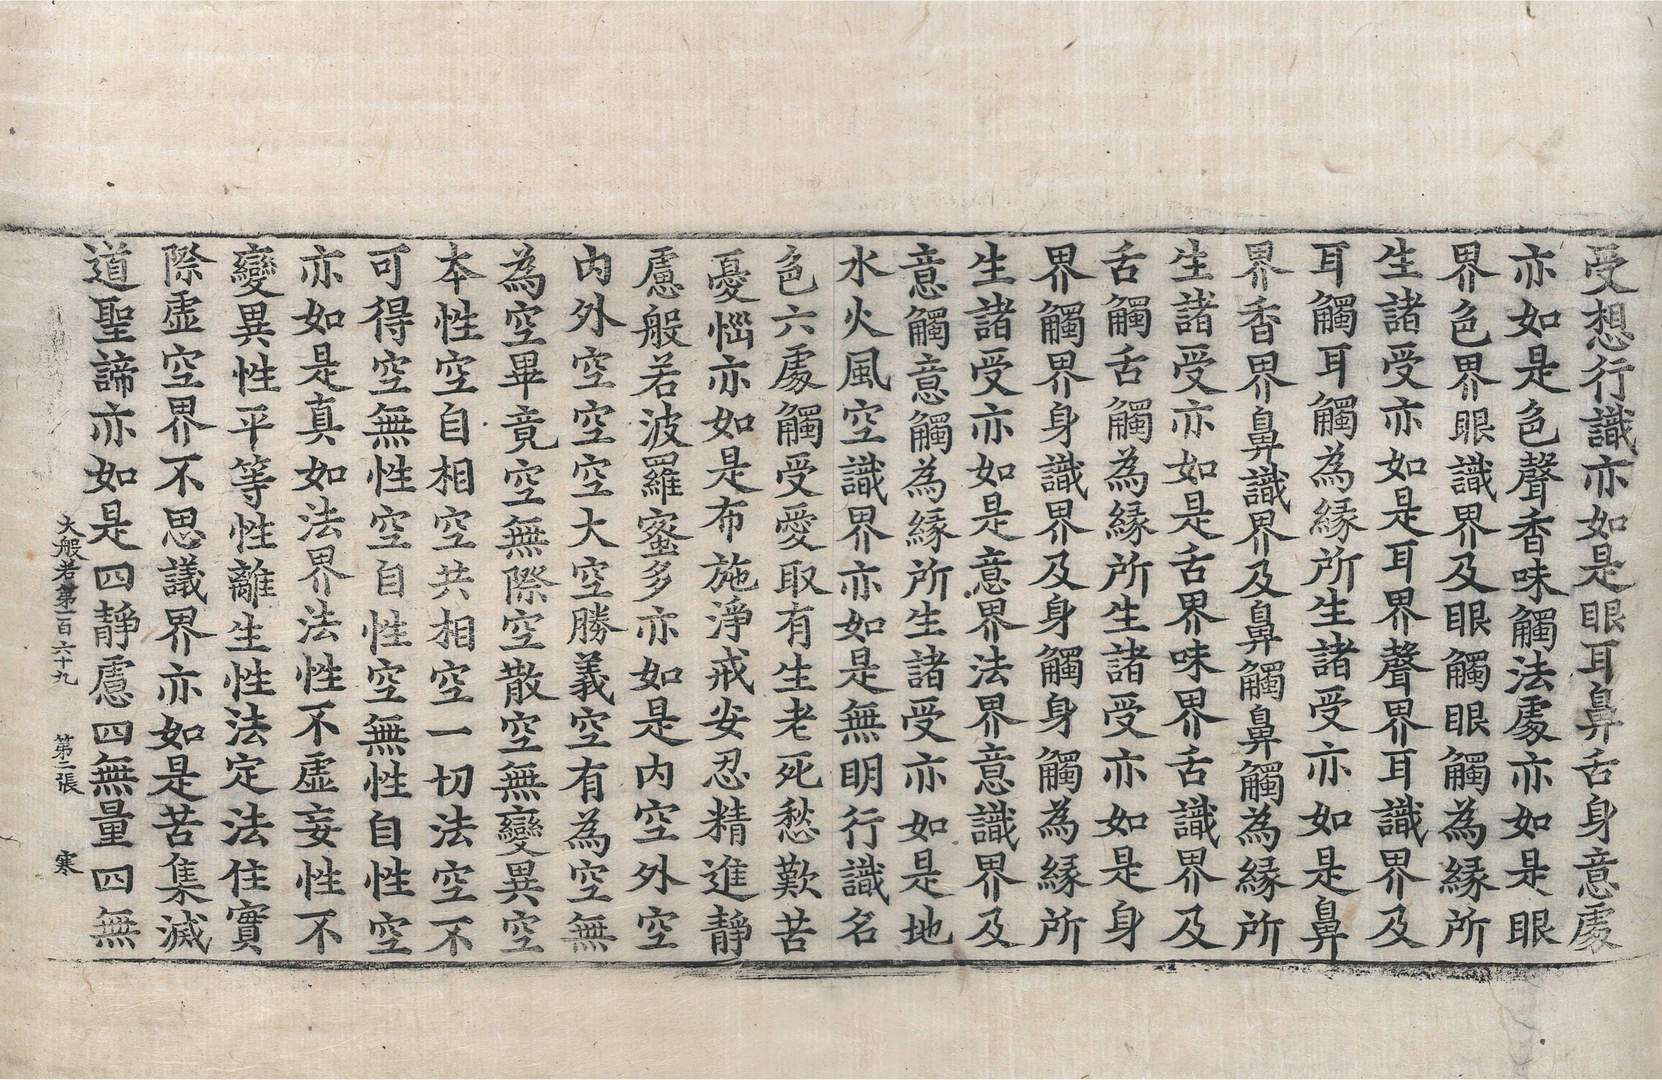 受想行識亦如是眼耳鼻舌身意處
亦如是色聲香味觸法處亦如是眼
界色界眼識界及眼觸眼觸為緣所
生諸受亦如是耳界聲界耳識界及
耳觸耳觸為緣所生諸受亦如是鼻
界香界鼻識界及鼻觸鼻觸為緣所
生諸受亦如是舌界味界舌識界及
舌觸舌觸為緣所生諸受亦如是身
界觸界身識界及身觸身觸為緣所
生諸受亦如是意界法界意識界及
意觸意觸為緣所生諸受亦如是地
水火風空識界亦如是無明行識名
色六處觸受愛取有生老死愁歎苦
憂惱亦如是布施淨戒安忍精進靜
慮般若波羅蜜多亦如是內空外空
內外空空空大空勝義空有為空無
為空畢竟空無際空散空無變異空
本性空自相空共相空一切法空不
可得空無性空自性空無性自性空
亦如是真如法界法性不虛妄性不
變異性平等性離生性法定法住實
際虛空界不思議界亦如是苦集滅
道聖諦亦如是四靜慮四無量四無
大般若第一百六十九 第二張 寒